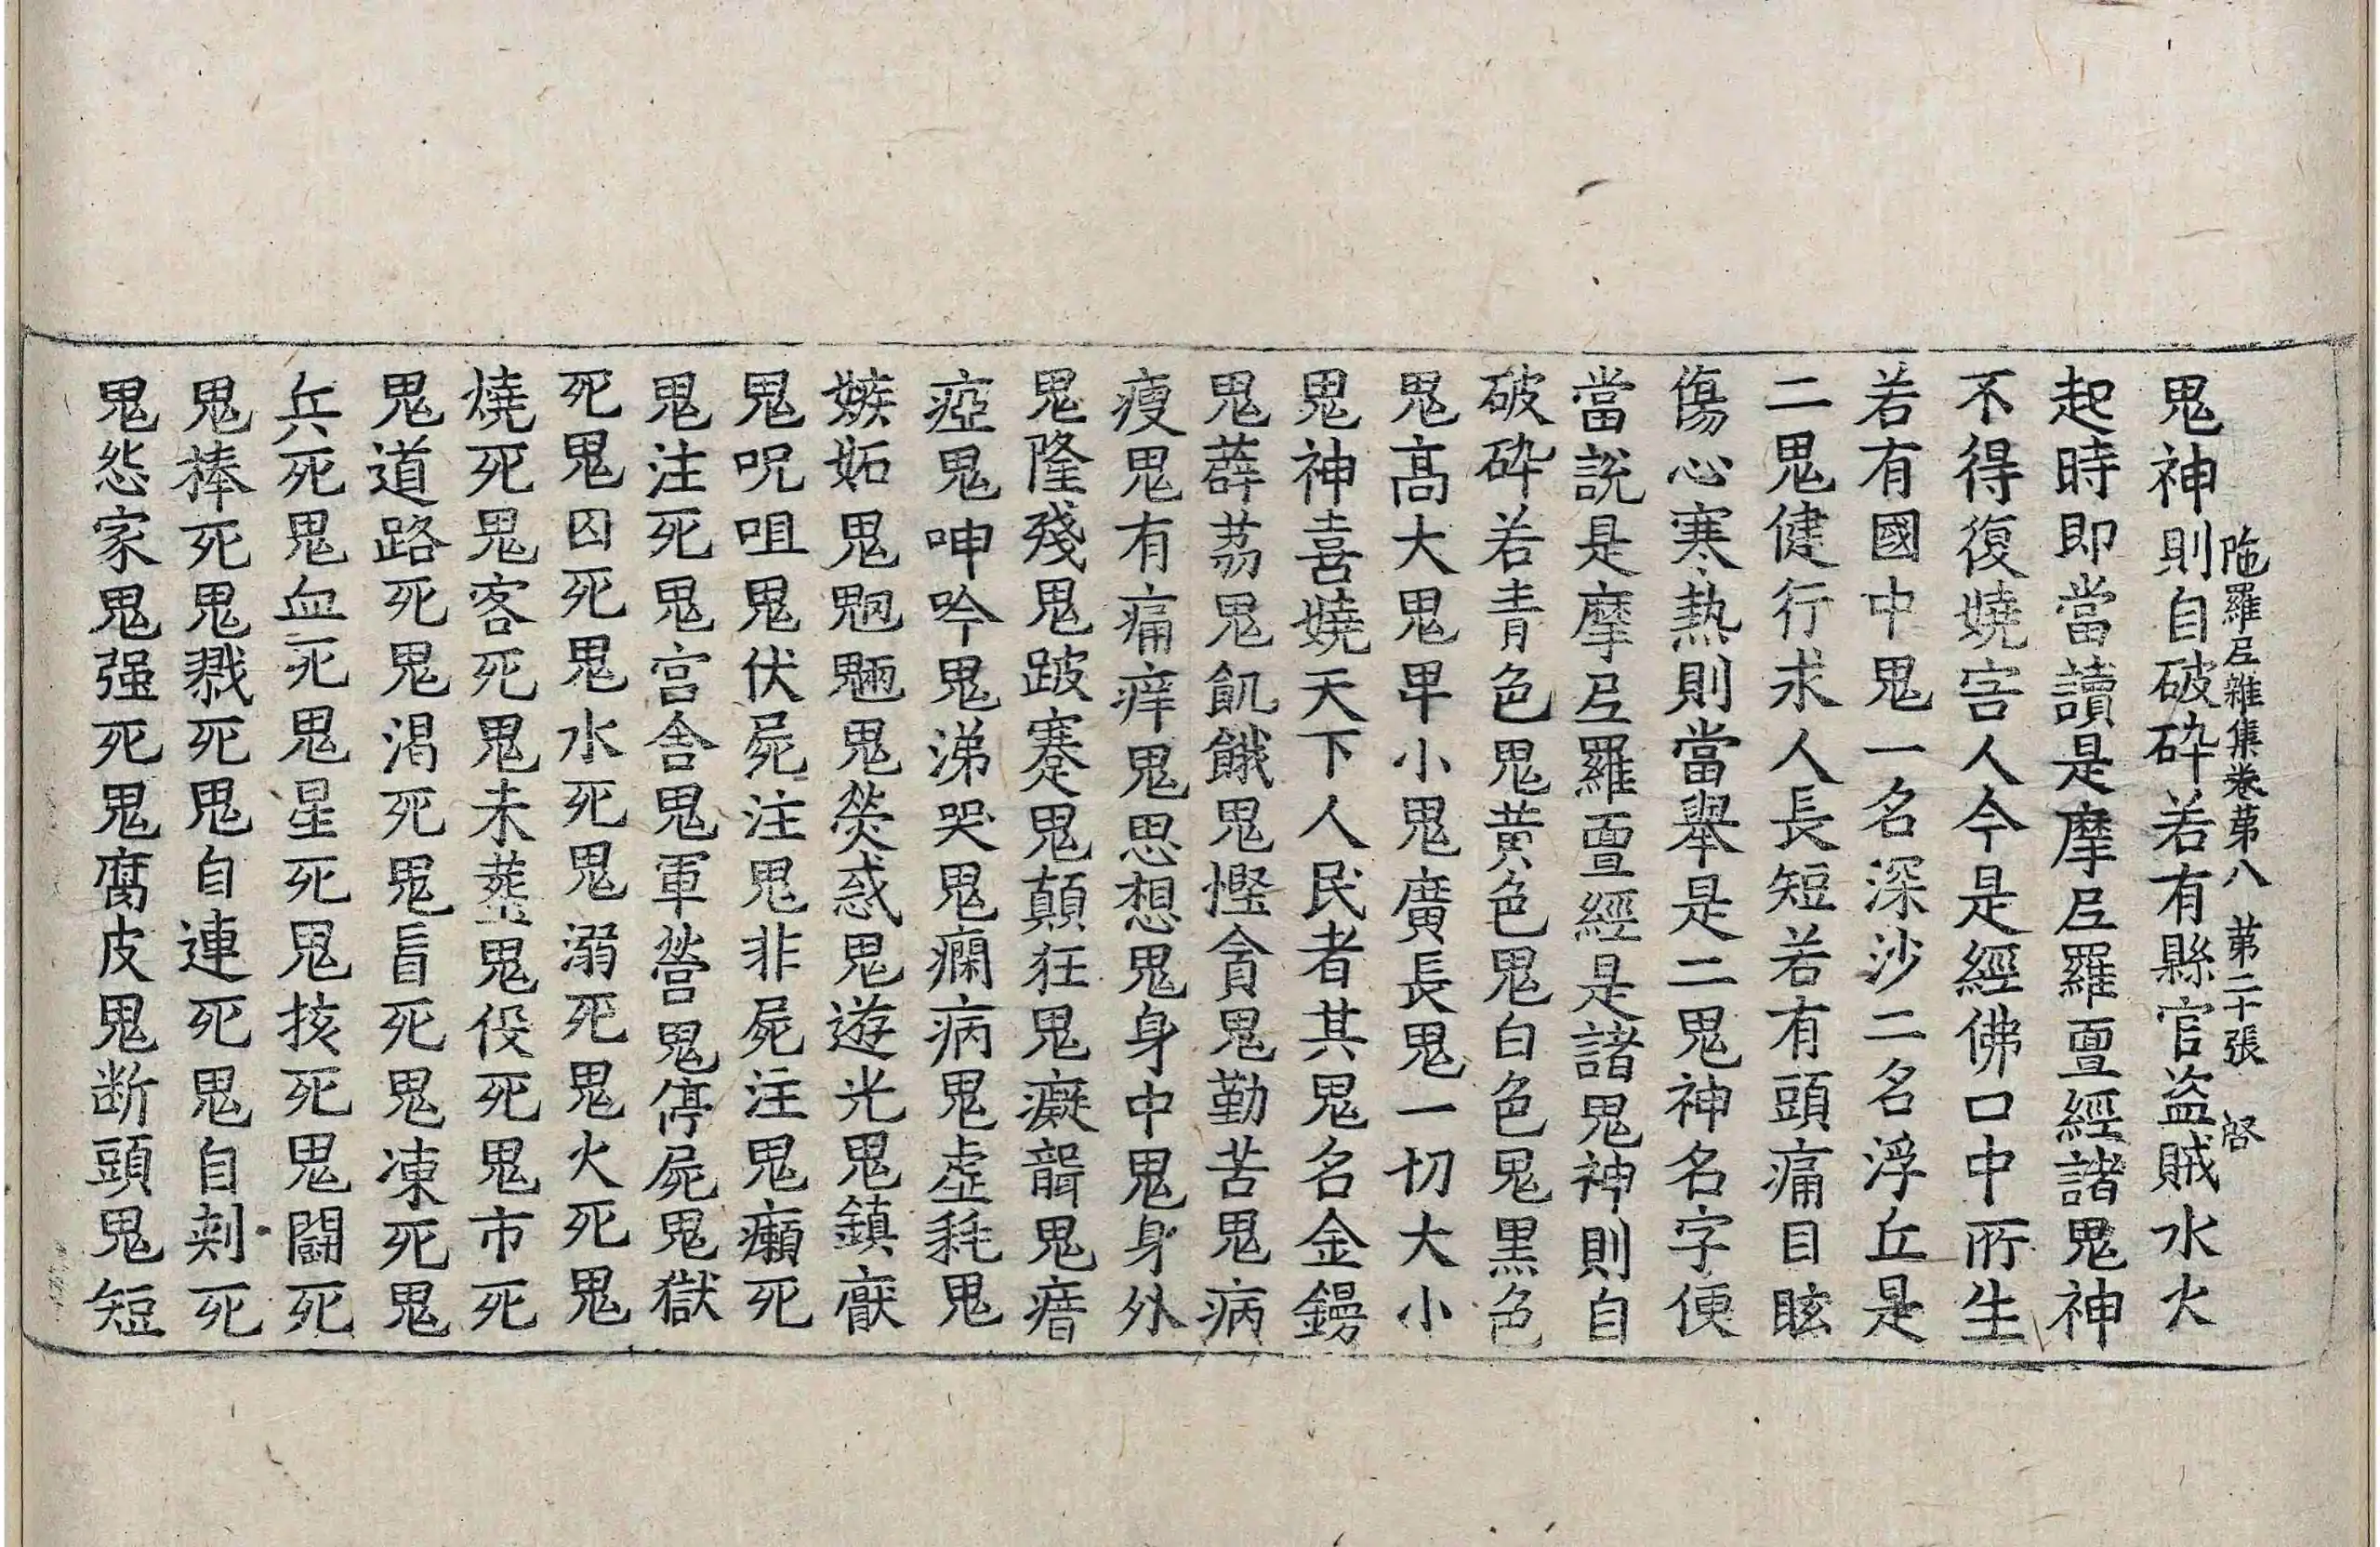 陁羅尼雜集卷第八 第二十張 啓
鬼神則自破碎若有縣官盜賊水火
起時即當讀是摩尼羅亶經諸鬼神
不得復嬈害人今是經佛口中所生
若有國中鬼一名深沙二名浮丘是
二鬼健行求人長短若有頭痛目眩
傷心寒熱則當舉是二鬼神名字便
當說是摩尼羅亶經是諸鬼神則自
破碎若青色鬼黃色鬼白色鬼黑色
鬼高大鬼卑小鬼廣長鬼一切大小
鬼神喜嬈天下人民者其鬼名金鐊
鬼薜荔鬼飢餓鬼慳貪鬼勤苦鬼病
瘦鬼有痛痒鬼思想鬼身中鬼身外
鬼隆殘鬼跛蹇鬼顛狂鬼癡聾鬼瘖
瘂鬼呻吟鬼涕哭鬼癎病鬼虛耗鬼
嫉妬鬼魍魎鬼熒惑鬼遊光鬼鎮厭
鬼呪咀鬼伏屍注鬼非屍注鬼癩死
鬼注死鬼宫舍鬼軍營鬼停屍鬼獄
死鬼囚死鬼水死鬼溺死鬼火死鬼
燒死鬼客死鬼未葬鬼役死鬼市死
鬼道路死鬼渴死鬼盲死鬼凍死鬼
兵死鬼血死鬼星死鬼㧡死鬼鬪死
鬼棒死鬼戮死鬼自連死鬼自刾死
鬼怨家鬼强死鬼腐皮鬼断頭鬼短